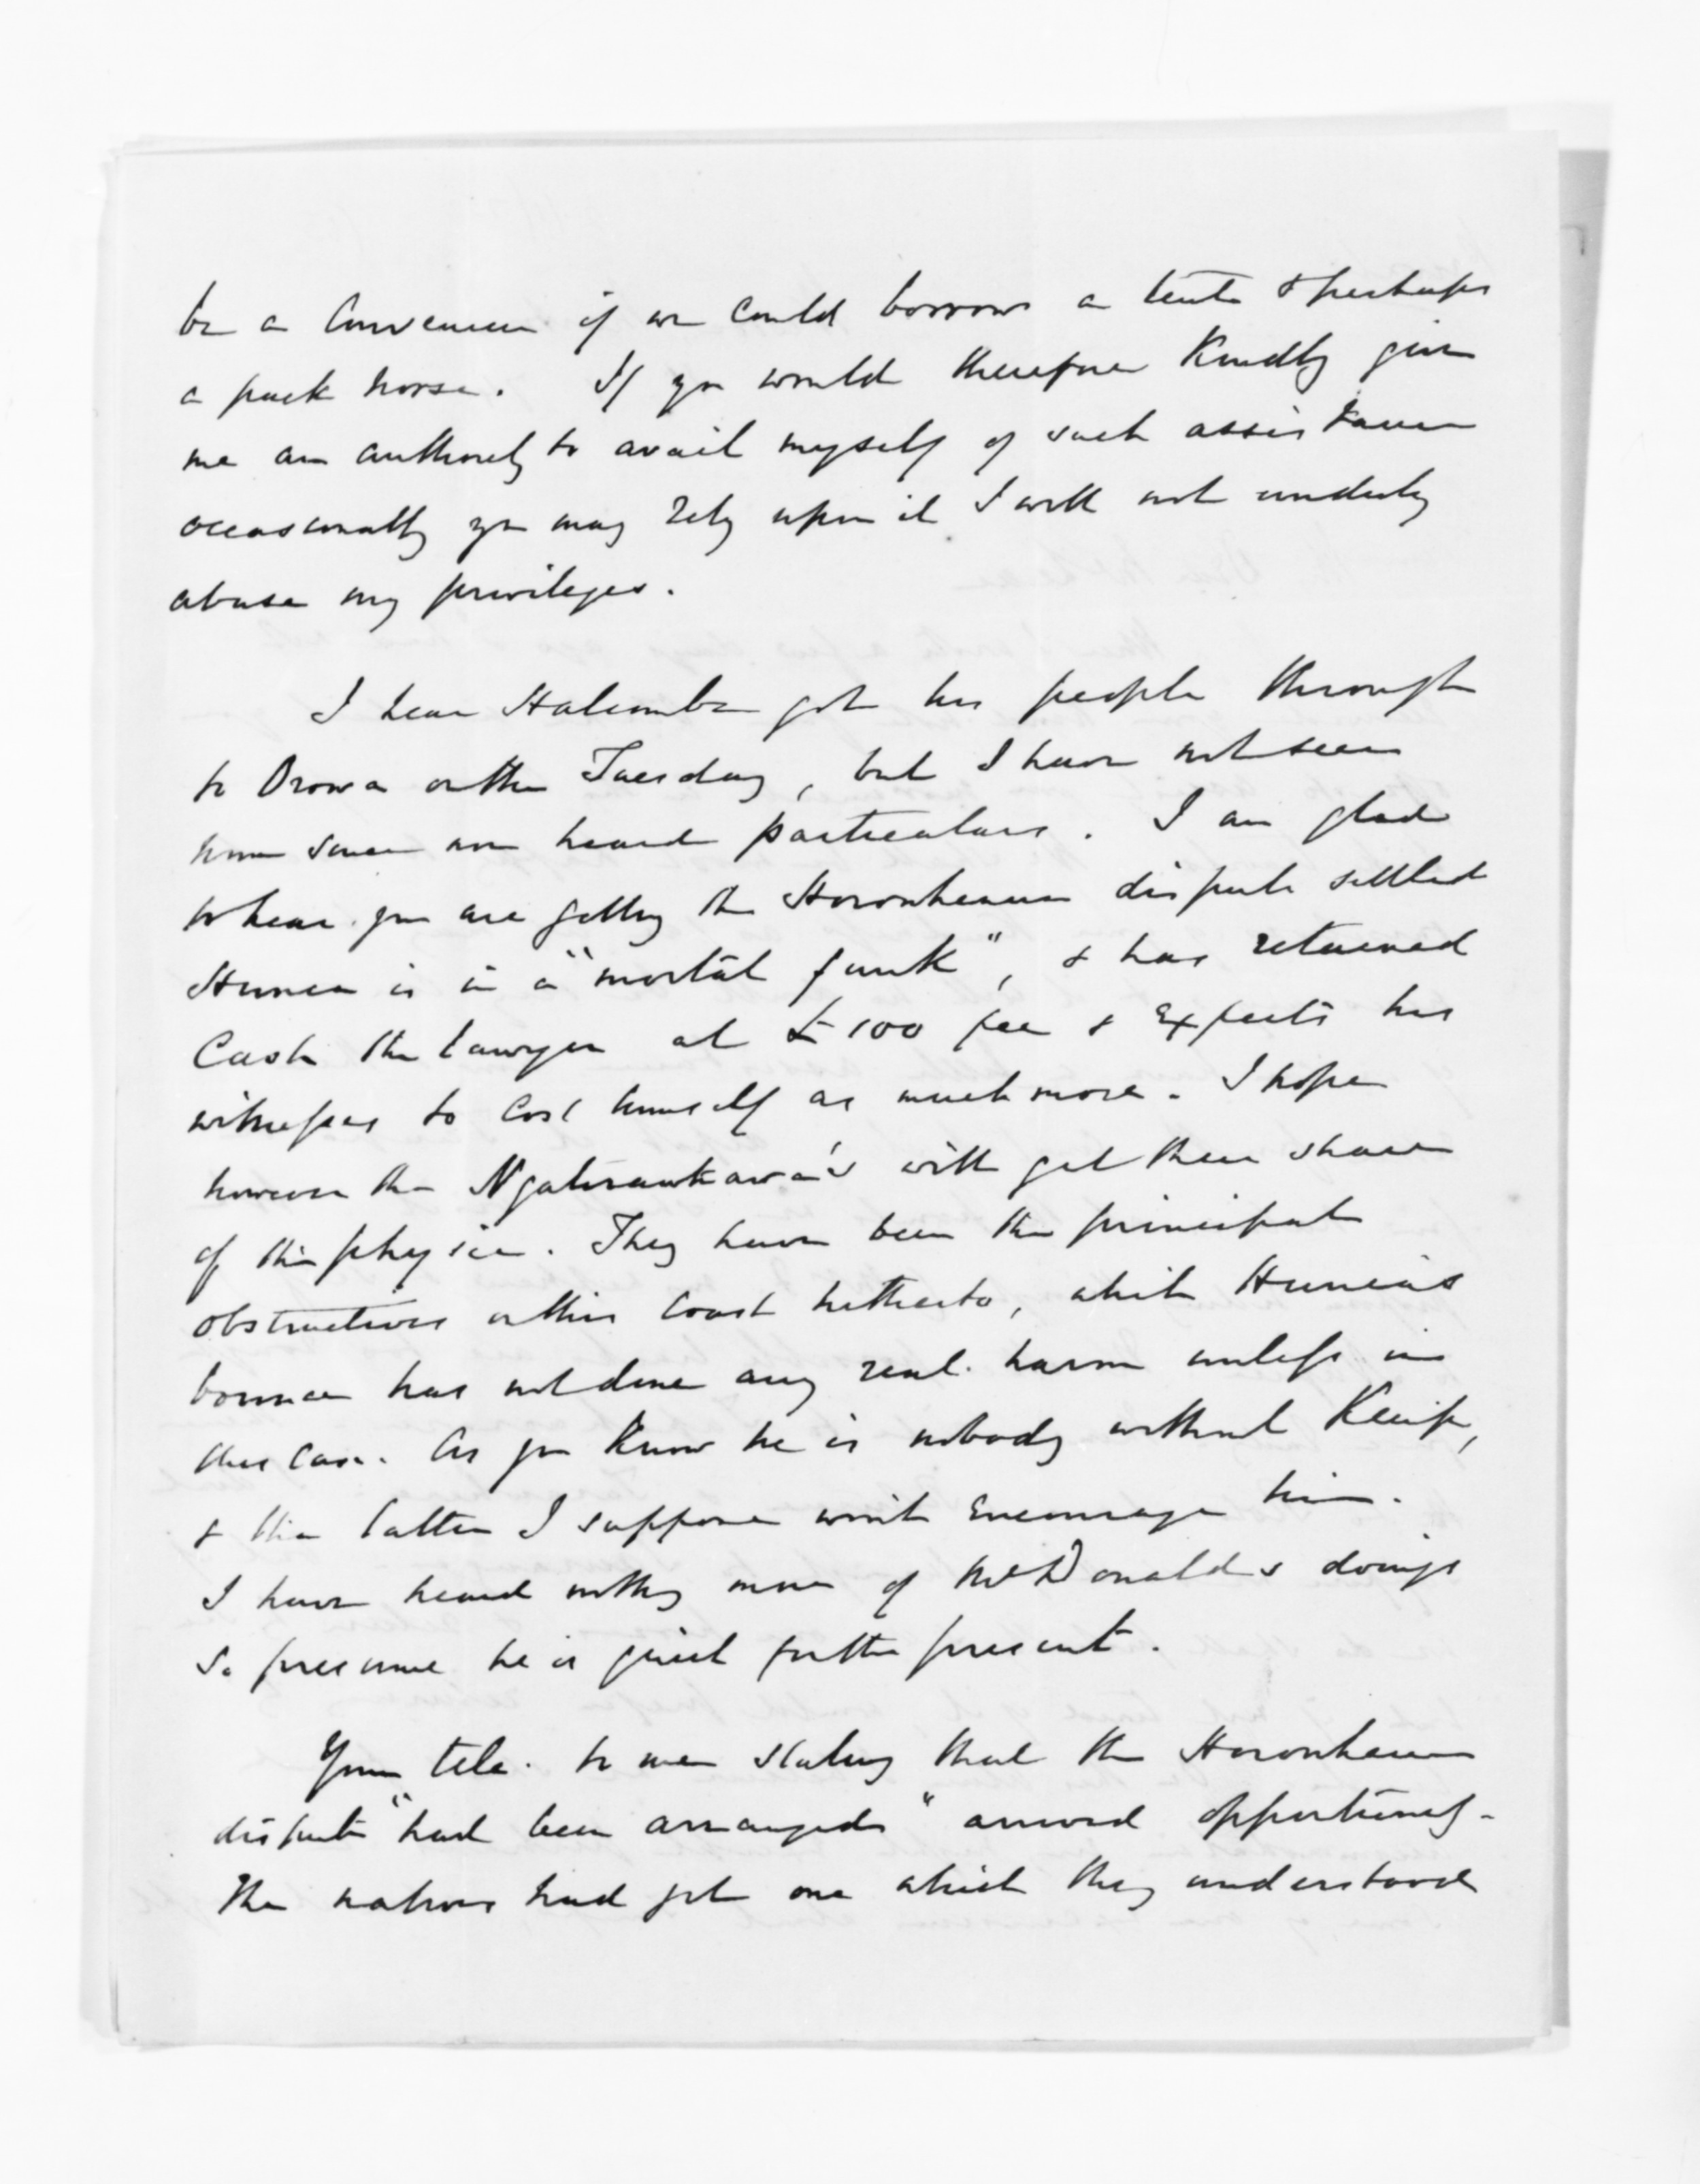 be a convenience if we could borrow a tent & perhaps
a pack horse. If you would therefore Kindly give
me an authority to avail myself of such assistance
occasionally you may rely upon it I will not unduly
abuse my privileges.
I hear Halcombe got his people through
to Oroua on the Tuesday, but I have not seen
him since nor heard particulars. I am glad
to hear you are getting the Horowhenua dispute settled
Hunia is in a "mortal funk", & has retained
Cash the Lawyer at £100 fee & Expects his
witnesses to cost himself as much more. I hope
however the Ngatiraukawa's will get their share
of the physic. They have been the principal
obstructives on this Coast hitherto, while Hunia's
bounce has not done any real harm unless in
this case. As you Know he is nobody without Keiip,
& the latter I suppose won't Encourage him.
I have heard nothing more of McDonalds doings
so presume he is quiet for the present.
Your tele. to me stating that the Horowhenua
dispute "had been arranged" arrived opportunely.
The natives had got one which they understood